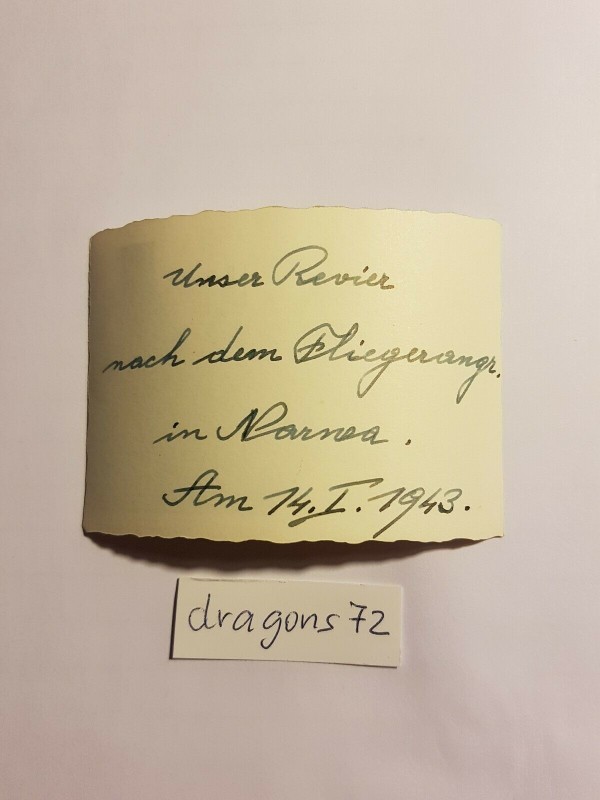 Unser Revier
nach dem Fliegerangr.
in Narwa.
Am 14.I.1943.
dragons72